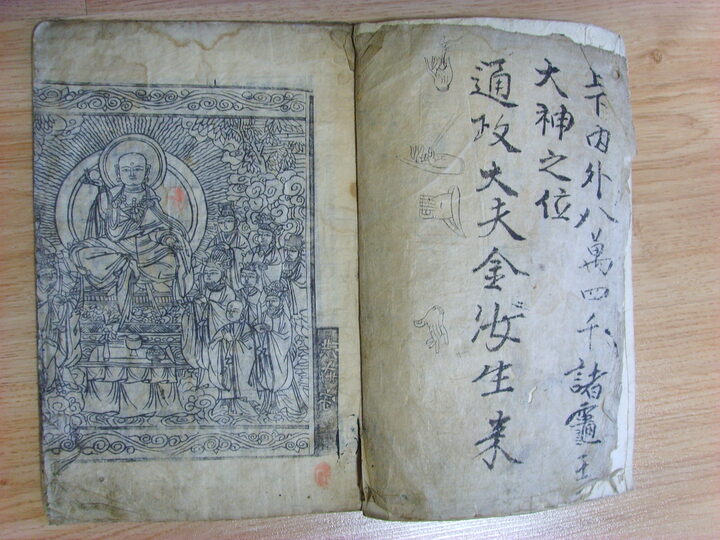 上下內外八萬四千諸竈王
大神之位
通政大夫金生来